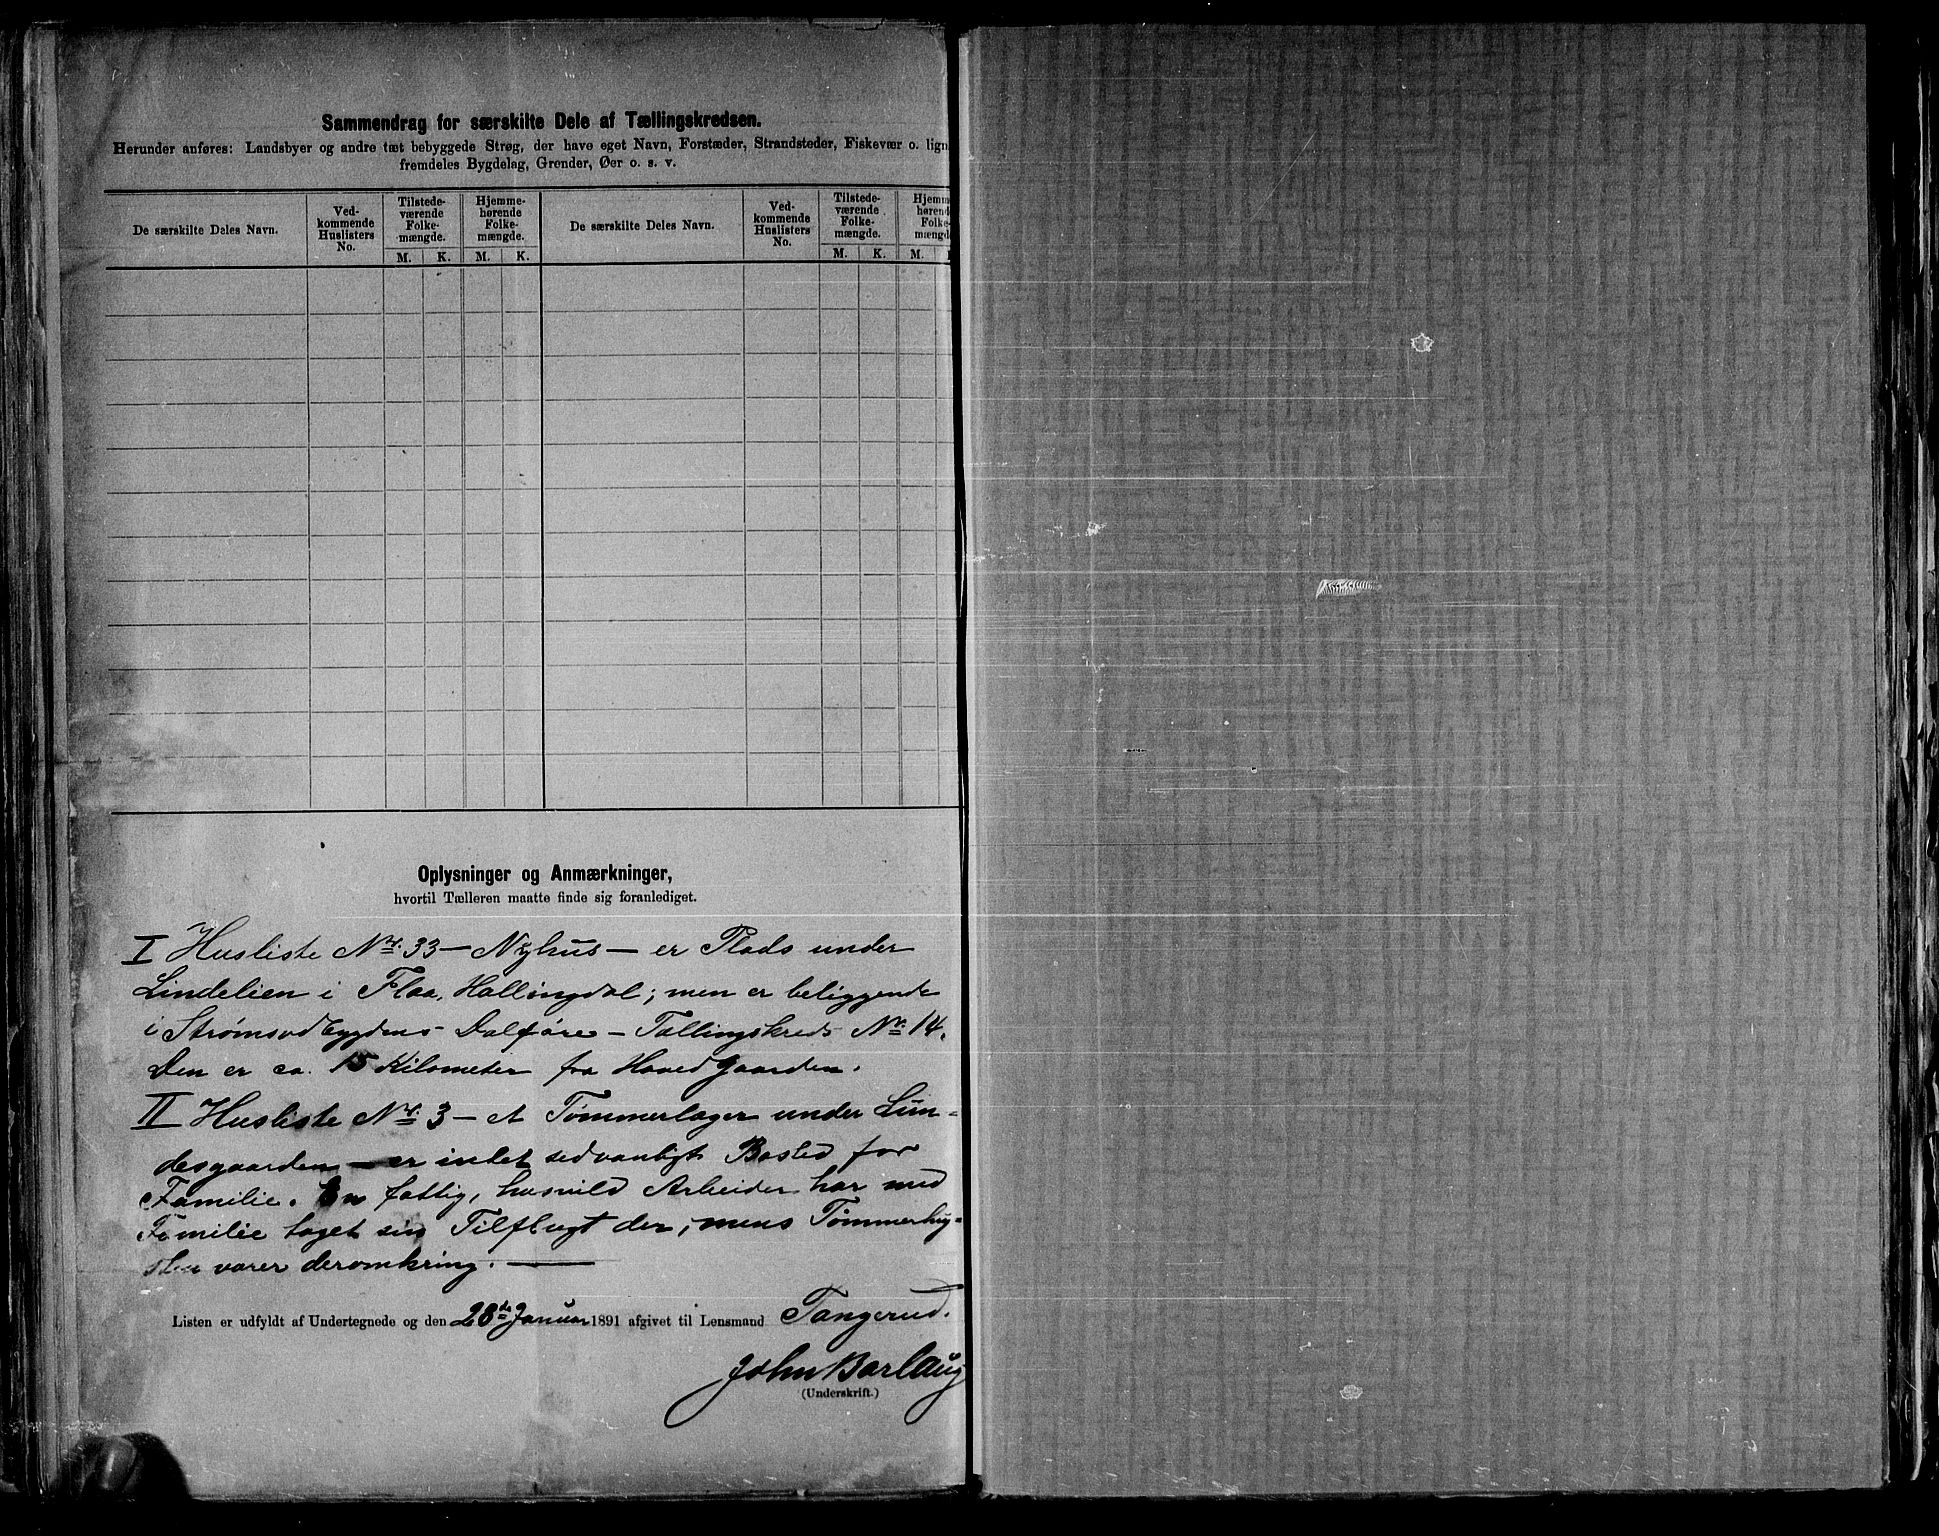 Sammendrag for særskilte Dele af Tællingskredsen.
Herunder anføres: Landsbyer og andre tæt bebyggede Strøg, der have eget Navn, Forstæder, Strandsteder, Fiskevær o. lign
fremdeles Bygdelag, Grender, Øer o. s. v.
De særskilte Deles Navn.
Ved-
kommende
Huslisters
No.
Tilstede-
værende
Folke-
mængde.
M. K.
Hjemme-
hørende
Folke-
mængde.
M. K.
De særskilte Deles Navn.
Ved-
kommende
Huslisters
No.
Tilstede-
værende
Folke-
mængde.
M. K.
Hjemm
hørend
Folke-
mængd
M.
Oplysninger og Anmærkninger,
hvortil Tælleren maatte finde sig foranlediget.
I Husliste Nr. 33 – Nyhus – er Plads under
Lindelien i Flaa, Hallingdal; men er beliggende
i Strømsodbygdens Dalføre – Tællingskreds Nr. 14.
Den er ca. 15 Kilometer fra Hovedgaarden.
II Husliste Nr. 3 – et Tømmerlager under Lun-
desgaarden – er intet sedvanligt Bosted for
Familie. En fattig, husvild Arbeider har med
Familie taget sin Tilflugt der, mens Tømmerhug-
sten varer deromkring. —
Listen er udfyldt af Undertegnede og den 28de Januar 1891 afgivet til Lensmand Tangerud.
John Barlaug
(Underskrift.)